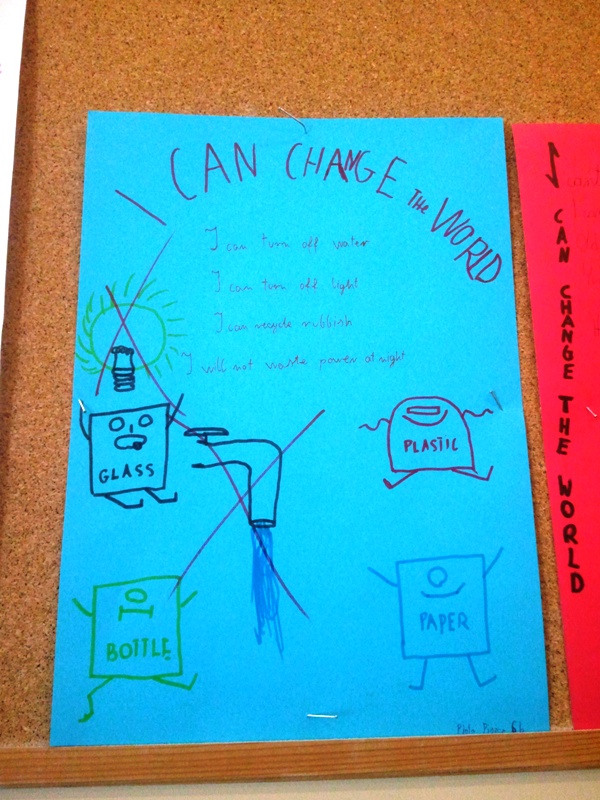 I CAN CHANGE THE WORLD
I can turn off water
I can turn off light
I can recycle rubbish
I will not waste power at night
GLASS
PLASTIC
BOTTLE
PAPER
6b
I CAN CHANGE THE WORLD